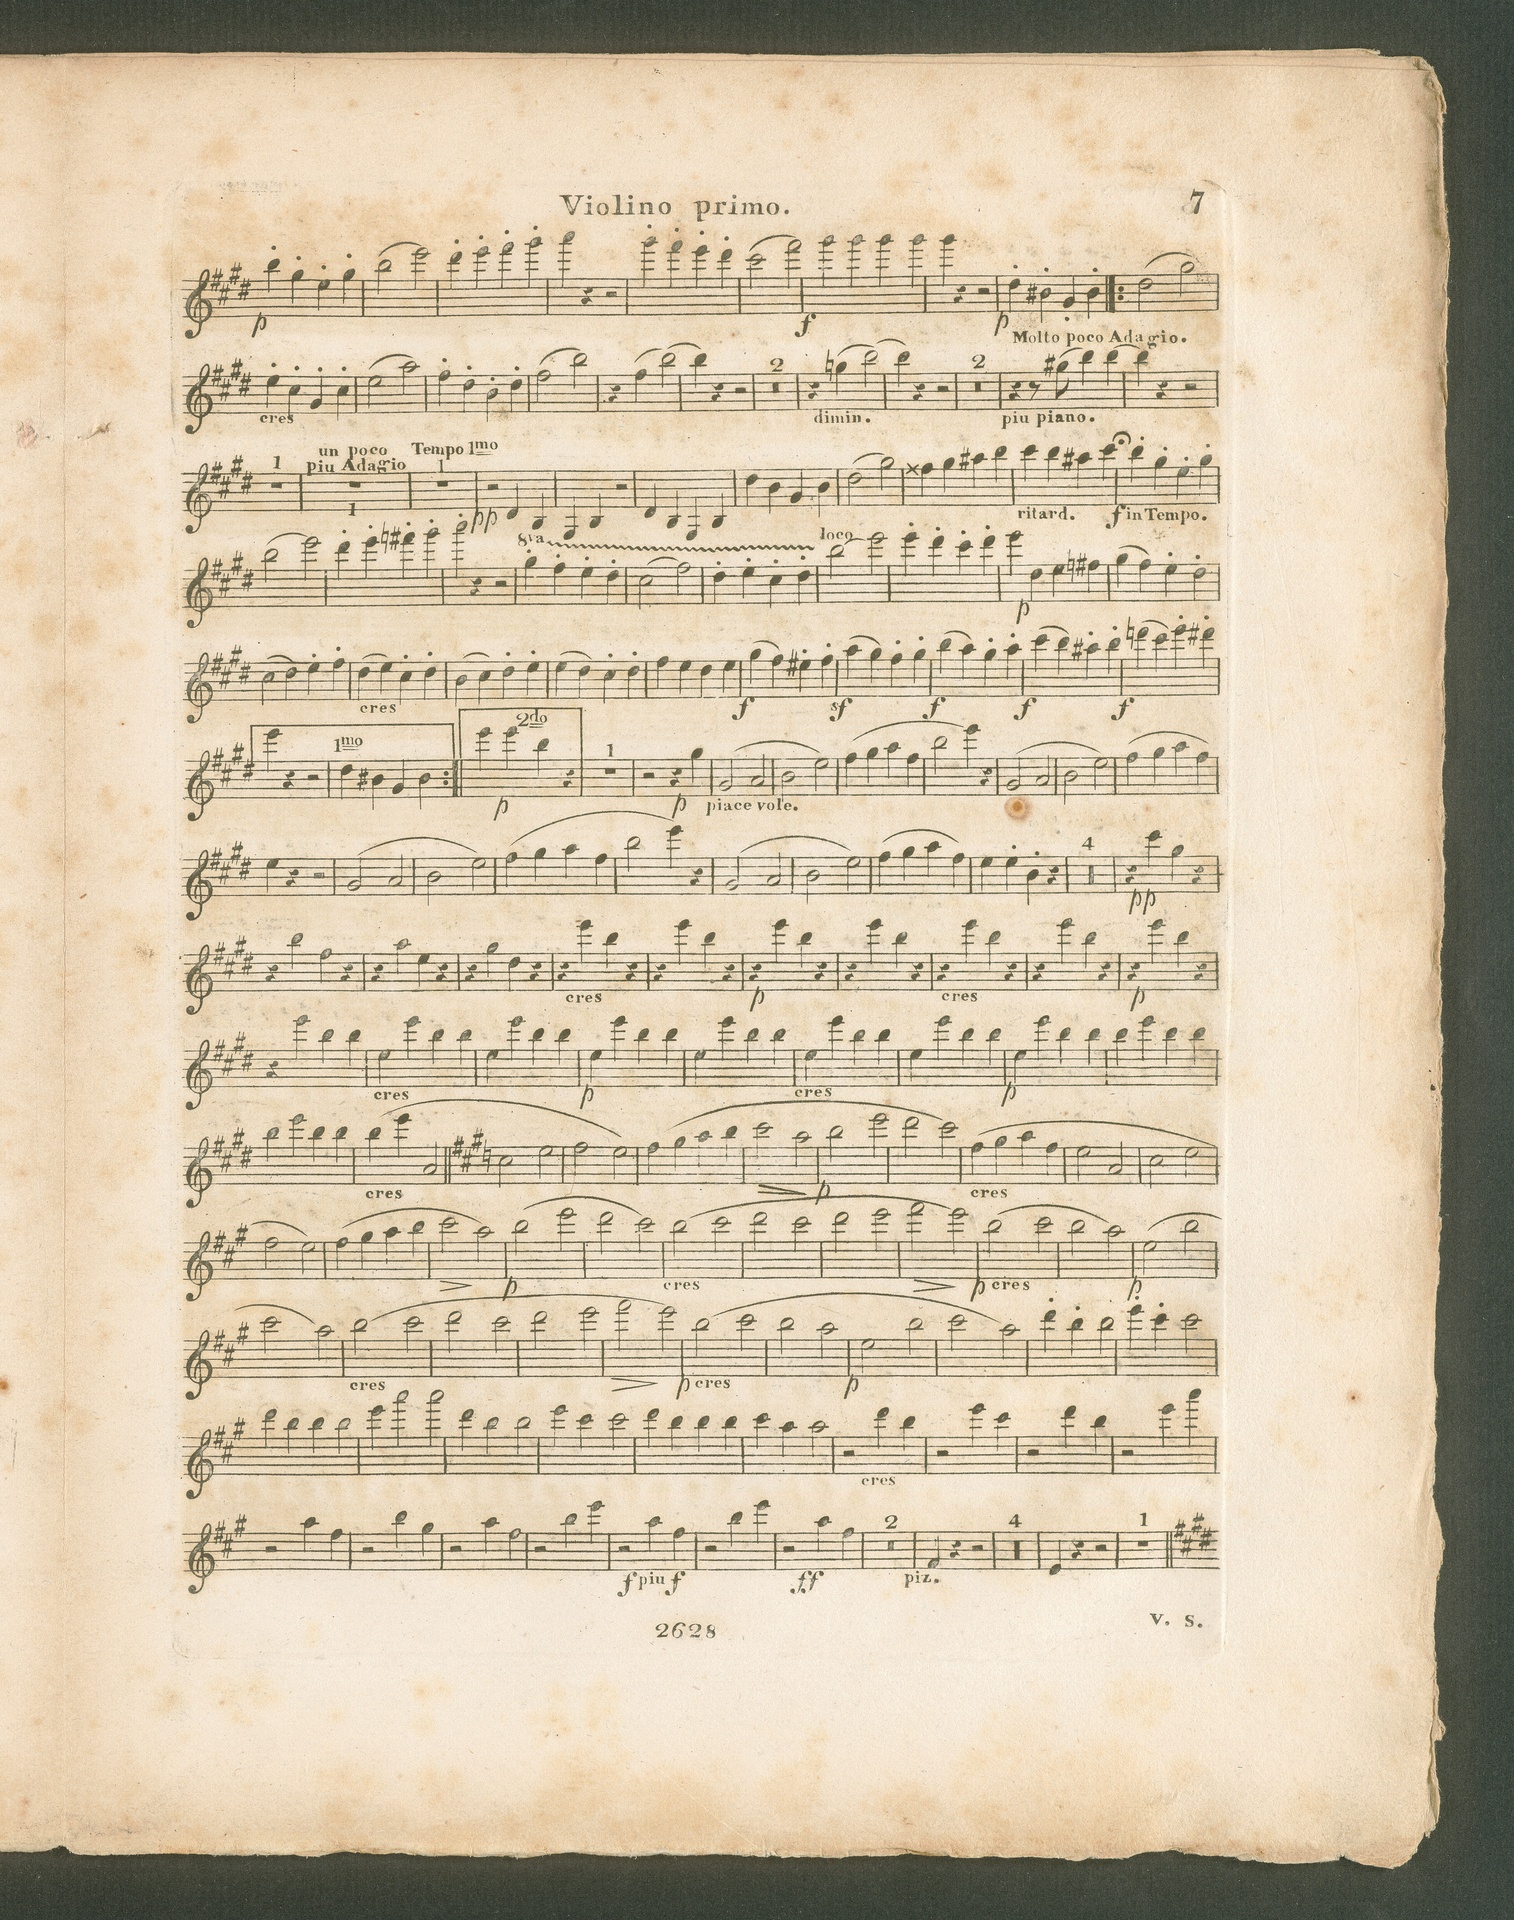 Violino primo. 7
p f p
Molto poco Adagio.
2 2
cres dimin. piu piano.
1 un poco Tempo 1mo
piu Adagio 1
1 pp ritard. f in Tempo.
8va loco
p
cres f sf f f f
1mo 2do 1
p p piace vole.
4
pp
cres p cres p
cres p cres p
cres p cres
p cres p cres p
cres p cres p
cres
2 4 1
f piu f ff piz.
2628 V. S.